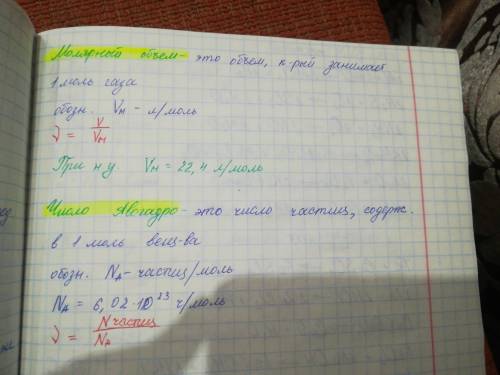 Молярный объем - это объем, к-рый занимает
1 моль газа
обозн. Vм - л/моль
ν = V/Vм
При н.у. Vм = 22,4 л/моль
Число Авогадро - это число частиц, содерж.
в 1 моль вещ-ва
обозн. NA - частиц/моль
NA = 6,02·10²³ ч/моль
ν = N частиц/NA